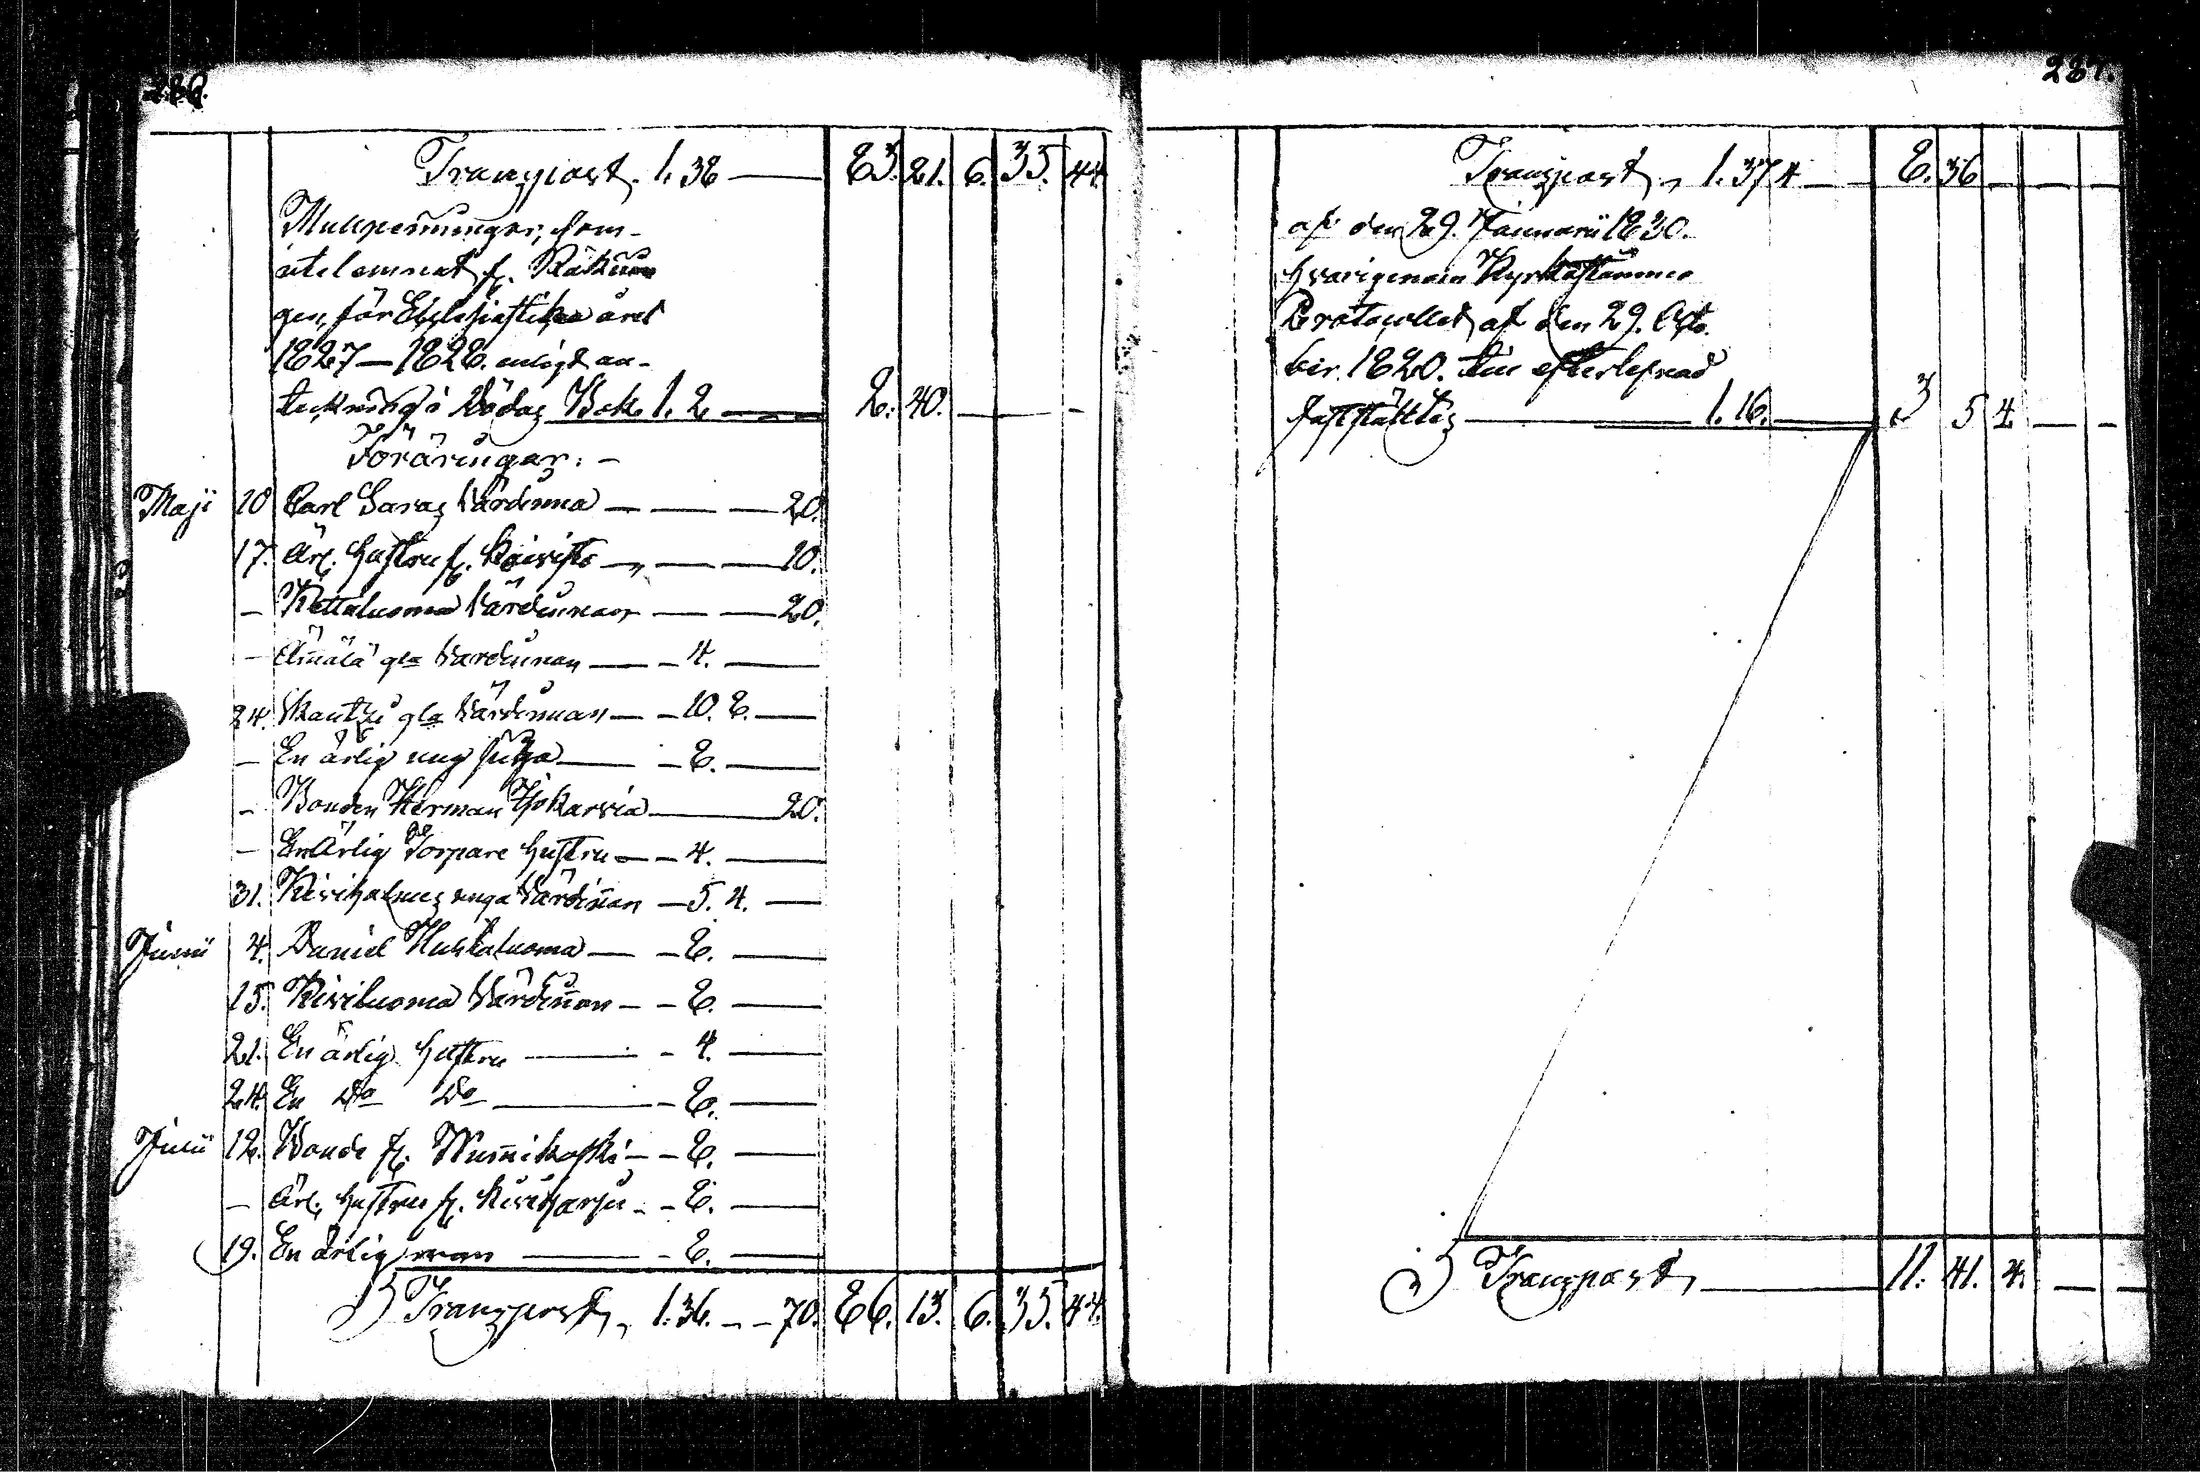 286.
Transport. 1. 38 — 83. 21. 6. 35. 44.
Mullpenningar, som
utelemnat fr. Räknin
gen, för Ecklesiastika året
1827—1828. enligt an-
teckning i Dödas Bok 1. 2 — 2. 40. — —
Föräringar: —
Maji 10 Carl Saras Värdinna — — — 20.
17. Ärl. Hustru fr. Koivisto — „ — — 10.
– Kettaluoma Värdinnan — — 20.
– gla Värdinnan — – 4. —
24. gla Värdinnan — – 10. 8. —
– En ärlig ung — – 8. —
– Bonden Herman — 20.
– En Ärlig Torpare Hustru — – 4. —
31. unga Värdinnan — 5. 4. —
Junii 4. Daniel — – 8. —
15. Kiviluoma Värdinnan – – 8. —
21. En ärlig Hustru — – 4. —
24. En Do Do — – 8. —
Julii 12. Bonde fr. – – 8. —
– Ärl. Hustru fr. Kiviharju – – 8. —
19. En ärlig man — – 8. —
Transport, 1. 36. – – 70. 86. 13. 6. 35. 44.
287.
Transport, 1. 37 4 — 8. 36 — — —
af den 29. Januarii 1830.
hvarigenom Kyrkostämmo
Protocollet af den 29. Octo
ber 1820. till efterlefnad
fastställtes — 1. 16. — 3 5 4 — –
Transport, — 11. 41. 4. — —